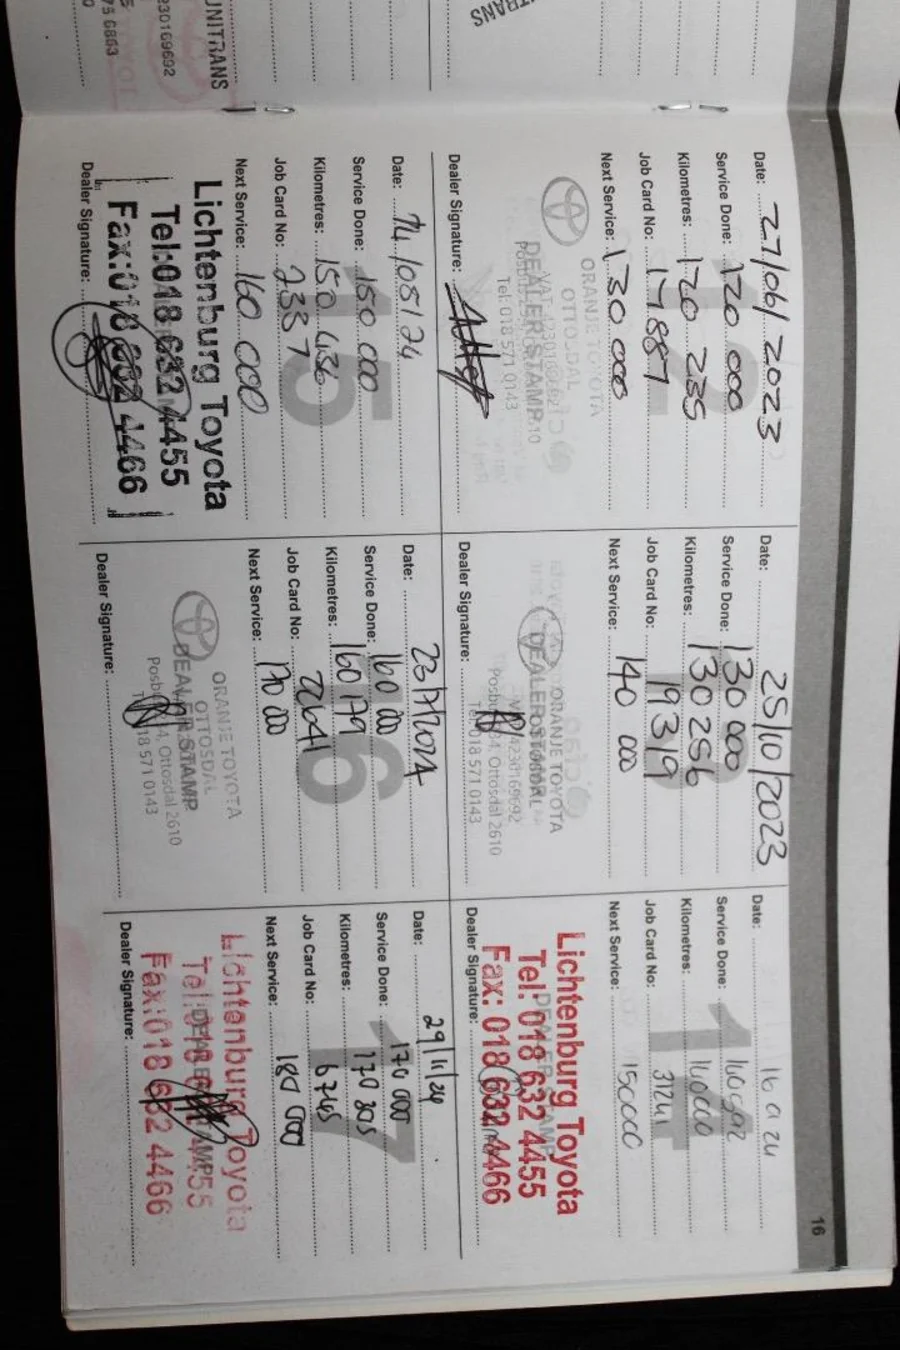 UNITRANS
230169692
75 6863
16
12
Date: 27/06/2023
Service Done: 120 000
Kilometres: 120 235
Job Card No: 17887
Next Service: 130 000
ORANJE TOYOTA
OTTOSDAL
DEALER STAMP
Tel: 018 571 0143
Dealer Signature:
Date: 25/10/2023
Service Done: 130 000
Kilometres: 130 256
Job Card No: 19319
Next Service: 140 000
ORANJE TOYOTA
DEALER STAMP
4230169692
Ottosdal 2610
Tel: 018 571 0143
Dealer Signature:
14
Date:
Service Done:
Kilometres:
Job Card No: 31241
Next Service: 150000
Lichtenburg Toyota
Tel: 018 632 4455
DEALER STAMP
Fax: 018 632 4466
Dealer Signature:
15
Date: 14/05/24
Service Done: 150 000
Kilometres: 150 436
Job Card No: 2337
Next Service: 160 000
Lichtenburg Toyota
Tel:018 632 4455
Fax:018 632 4466
Dealer Signature:
16
Date: 23/7/2024
Service Done: 160 000
Kilometres: 160179
Job Card No: 22641
Next Service: 170 000
ORANJE TOYOTA
OTTOSDAL
DEALER STAMP
Ottosdal 2610
018 571 0143
Dealer Signature:
17
Date: 29/11/24
Service Done: 170 000
Kilometres: 170 305
Job Card No: 6745
Next Service: 180 000
Lichtenburg Toyota
Tel:018 632 4455
Fax:018 632 4466
Dealer Signature: